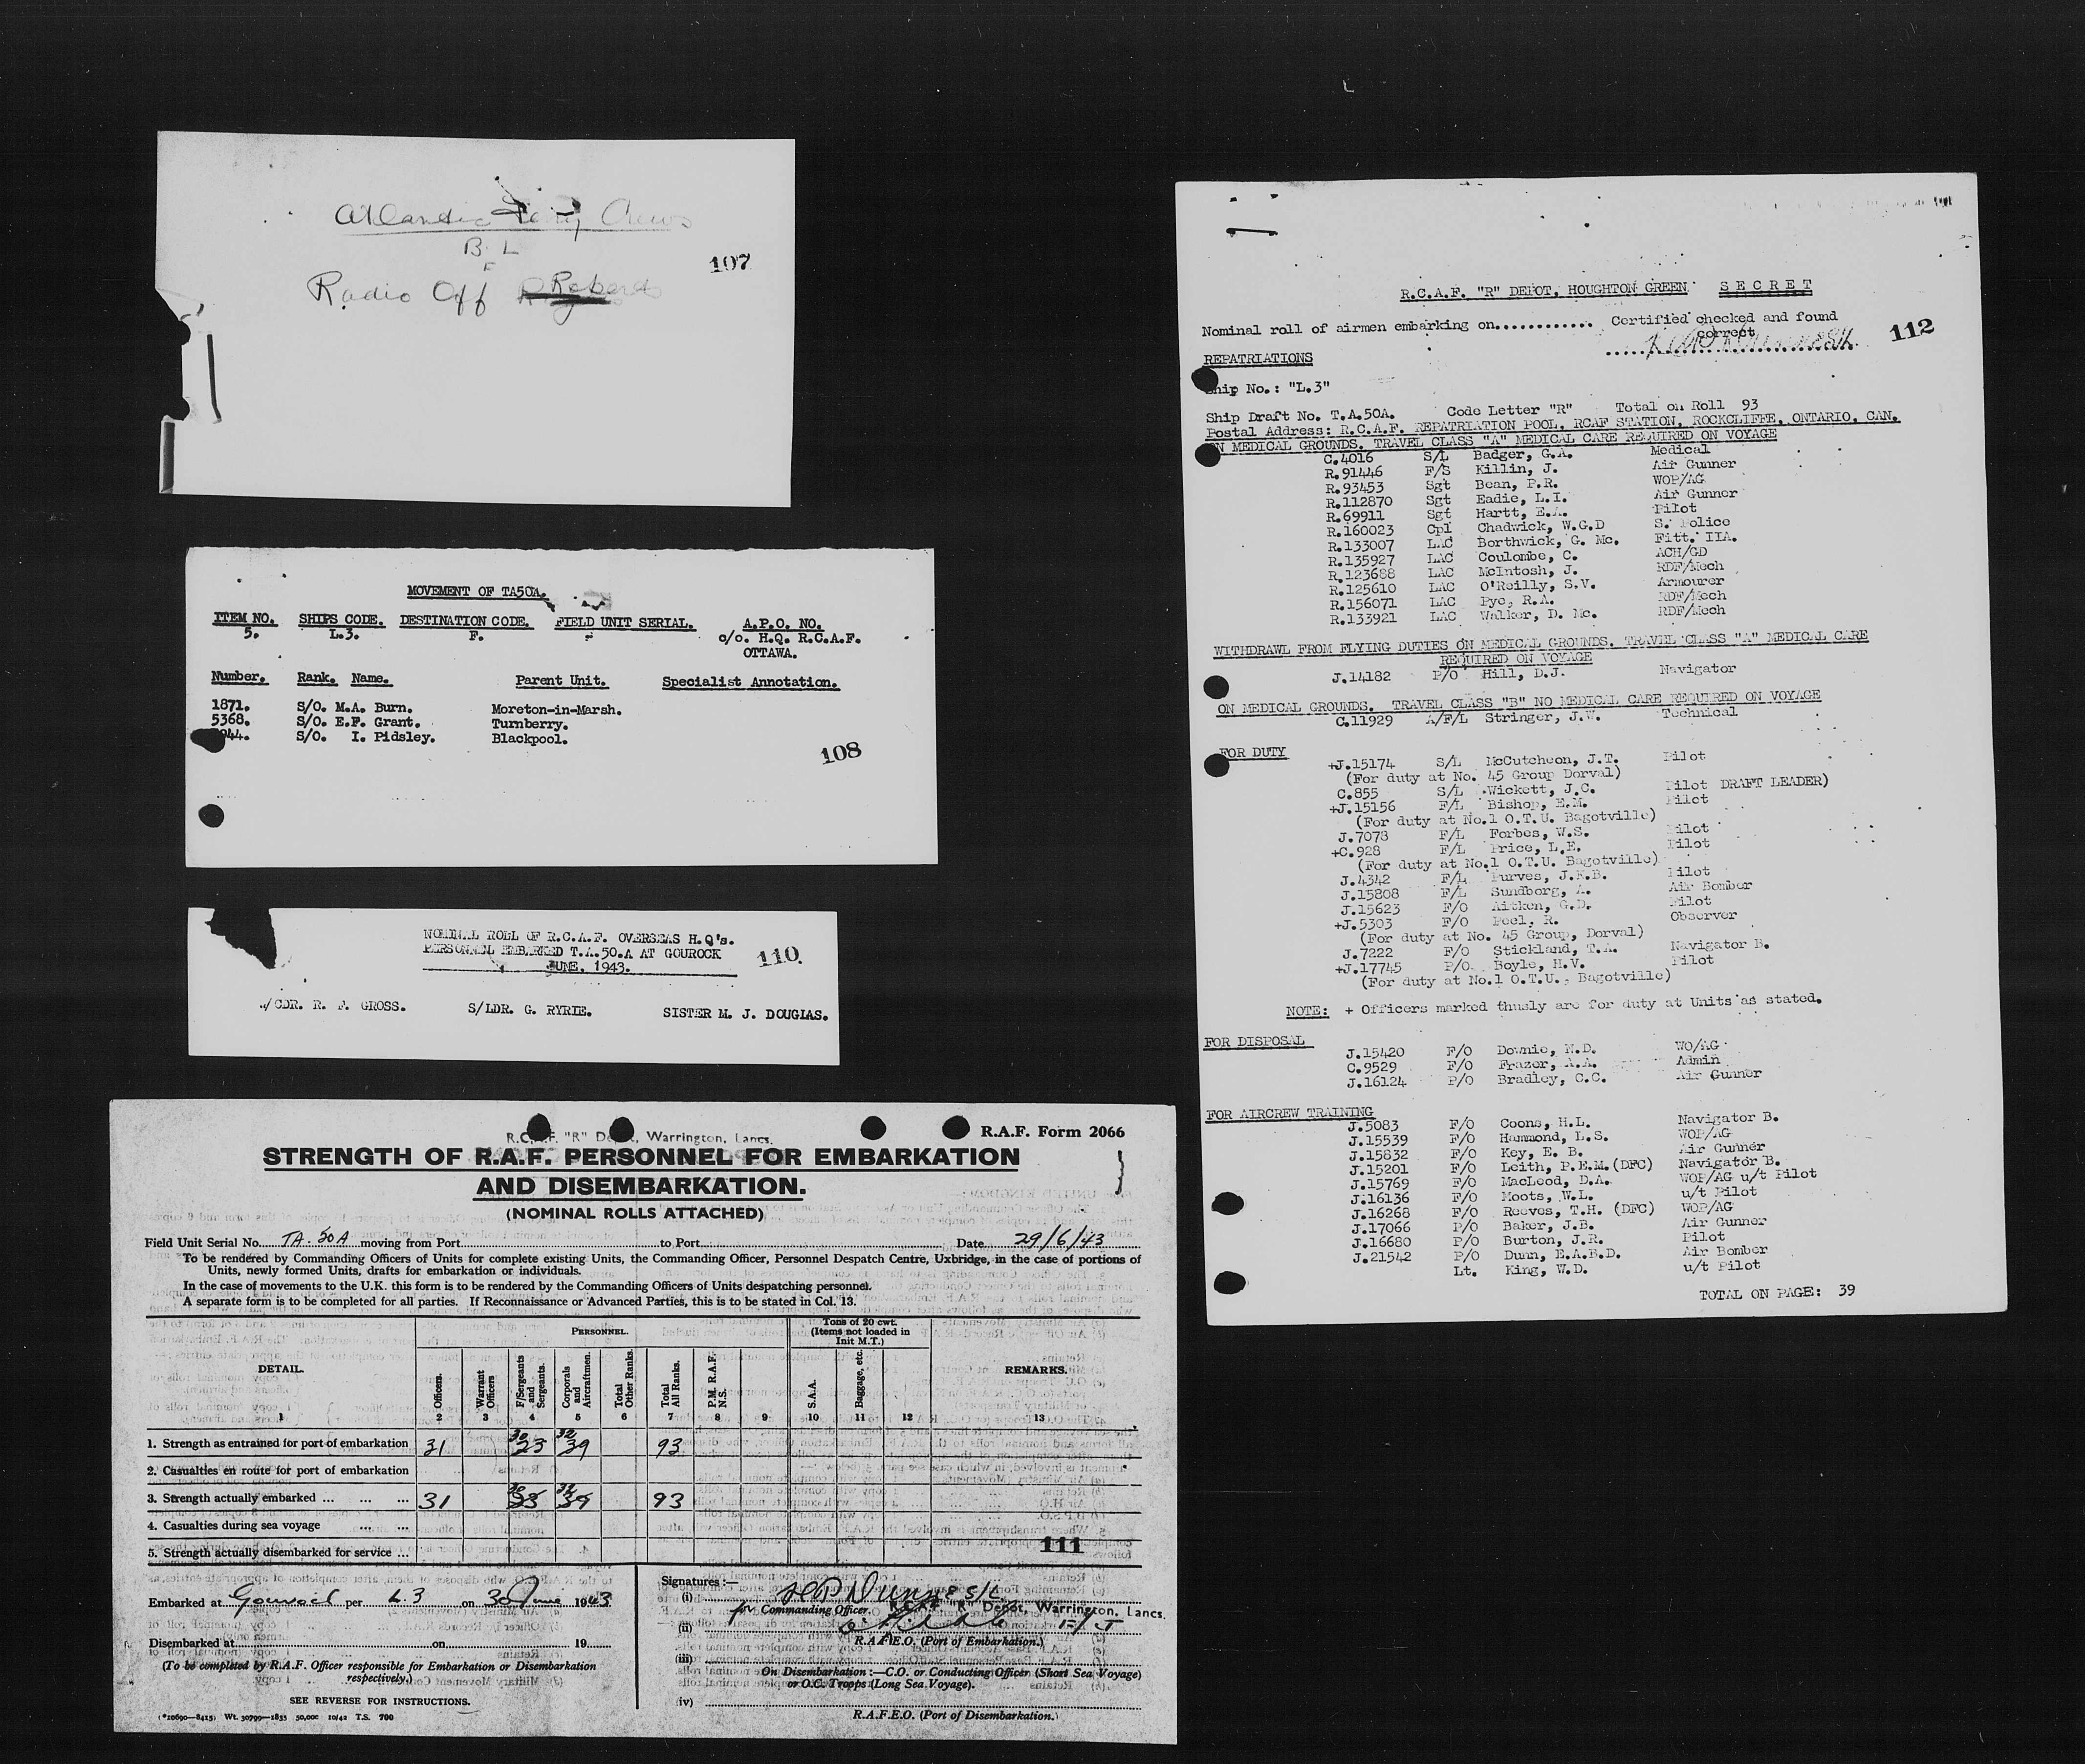 Atlantic Ferry Crews
B. L
F
107
Radio Off
MOVEMENT OF TA50A.
ITEM NO. SHIPS CODE. DESTINATION CODE. FIELD UNIT SERIAL. A.P.O. NO.
5. L.3. F. - c/o. H.Q. R.C.A.F.
OTTAWA.
Number. Rank. Name. Parent Unit. Specialist Annotation.
1871. S/O. M.A. Burn. Moreton-in-Marsh.
5368. S/O. E.F. Grant. Turnberry.
44. S/O. I. Pidsley. Blackpool.
108
NOMINAL ROLL OF R.C.A.F. OVERSEAS H.Q's.
PERSONNEL EMBARKED T.A.50.A AT GOUROCK
JUNE, 1943.
110.
W/CDR. R. F. GROSS. S/LDR. G. RYRIE. SISTER M. J. DOUGLAS.
R.C.A.F. "R" Depot, Warrington, Lancs.
R.A.F. Form 2066
STRENGTH OF R.A.F. PERSONNEL FOR EMBARKATION
AND DISEMBARKATION.
(NOMINAL ROLLS ATTACHED)
Field Unit Serial No. TA. 50A moving from Port to Port Date 29/6/43
To be rendered by Commanding Officers of Units for complete existing Units, the Commanding Officer, Personnel Despatch Centre, Uxbridge, in the case of portions of
Units, newly formed Units, drafts for embarkation or individuals.
In the case of movements to the U.K. this form is to be rendered by the Commanding Officers of Units despatching personnel.
A separate form is to be completed for all parties. If Reconnaissance or Advanced Parties, this is to be stated in Col. 13.
DETAIL. PERSONNEL. Tons of 20 cwt. (Items not loaded in Init M.T.) REMARKS.
Officers. Warrant Officers F/Sergeants and Sergeants. Corporals and Aircraftmen. Total Other Ranks. Total All Ranks. P.M. R.A.F. N.S. S.A.A. Baggage, etc.
1 2 3 4 5 6 7 8 9 10 11 12 13
30 32
1. Strength as entrained for port of embarkation 31 23 39 93
2. Casualties en route for port of embarkation
30 32
3. Strength actually embarked ... ... ... 31 23 39 93
4. Casualties during sea voyage ... ...
5. Strength actually disembarked for service ...
111
Embarked at Gourock per L.3 on 30 June 1943
Disembarked at on 19
(To be completed by R.A.F. Officer responsible for Embarkation or Disembarkation
respectively.)
SEE REVERSE FOR INSTRUCTIONS.
(*10690—8415) Wt. 30799—1855 50,000 10/42 T.S. 700
Signatures :—
(i) S/L
for Commanding Officer. R.C.A.F. "R" Depot, Warrington, Lancs.
(ii) F/L
R.A.F.E.O. (Port of Embarkation.)
(iii)
On Disembarkation :—C.O. or Conducting Officer (Short Sea Voyage)
or O.C. Troops (Long Sea Voyage).
(iv)
R.A.F.E.O. (Port of Disembarkation.)
R.C.A.F. "R" DEPOT, HOUGHTON GREEN. SECRET
Nominal roll of airmen embarking on............ Certified checked and found
correct
112
REPATRIATIONS
Ship No.: "L.3"
Ship Draft No. T.A.50A. Code Letter "R" Total on Roll 93
Postal Address: R.C.A.F. REPATRIATION POOL, RCAF STATION, ROCKCLIFFE, ONTARIO, CAN.
ON MEDICAL GROUNDS. TRAVEL CLASS "A" MEDICAL CARE REQUIRED ON VOYAGE
C.4016 S/L Badger, G.A. Medical
R.91446 F/S Killin, J. Air Gunner
R.93453 Sgt Bean, P.R. WOP/AG
R.112870 Sgt Eadie, L.I. Air Gunner
R.69911 Sgt Hartt, E.A. Pilot
R.160023 Cpl Chadwick, W.G.D S. Police
R.133007 LAC Borthwick, G. Mc. Fitt. IIA.
R.135927 LAC Coulombe, C. ACH/GD
R.123688 LAC McIntosh, J. RDF/Mech
R.125610 LAC O'Reilly, S.V. Armourer
R.156071 LAC Pye, R.A. RDF/Mech
R.133921 LAC Walker, D. Mc. RDF/Mech
WITHDRAWL FROM FLYING DUTIES ON MEDICAL GROUNDS. TRAVEL CLASS "A" MEDICAL CARE
REQUIRED ON VOYAGE
J.14182 P/O Hill, D.J. Navigator
ON MEDICAL GROUNDS. TRAVEL CLASS "B" NO MEDICAL CARE REQUIRED ON VOYAGE
C.11929 A/F/L Stringer, J.W. Technical
FOR DUTY
+J.15174 S/L McCutcheon, J.T. Pilot
(For duty at No. 45 Group Dorval)
C.855 S/L Wickett, J.C. Pilot DRAFT LEADER)
+J.15156 F/L Bishop, E.M. Pilot
(For duty at No.1 O.T.U. Bagotville)
J.7078 F/L Forbes, W.S. Pilot
+C.928 F/L Price, L.E. Pilot
(For duty at No.1 O.T.U. Bagotville)
J.4342 F/L Purves, J.K.B. Pilot
J.15808 F/L Sundborg, A. Air Bomber
J.15623 F/O Aitken, G.D. Pilot
+J.5303 F/O Peel, R. Observer
(For duty at No. 45 Group, Dorval)
J.7222 F/O Stickland, T.A. Navigator B.
+J.17745 P/O. Boyle, H.V. Pilot
(For duty at No.1 O.T.U., Bagotville)
NOTE: + Officers marked thusly are for duty at Units as stated.
FOR DISPOSAL
J.15420 F/O Downie, N.D. WO/AG
C.9529 F/O Frazer, A.A. Admin
J.16124 P/O Bradley, C.C. Air Gunner
FOR AIRCREW TRAINING
J.5083 F/O Coons, H.L. Navigator B.
J.15539 F/O Hammond, L.S. WOP/AG
J.15832 F/O Key, E. B. Air Gunner
J.15201 F/O Leith, P.E.M.(DFC) Navigator B.
J.15769 F/O MacLeod, D.A. WOP/AG u/t Pilot
J.16136 F/O Moots, W.L. u/t Pilot
J.16268 F/O Reeves, T.H. (DFC) WOP/AG
J.17066 P/O Baker, J.B. Air Gunner
J.16680 P/O Burton, J.R. Pilot
J.21542 P/O Dunn, E.A.E.D. Air Bomber
Lt. King, W.D. u/t Pilot
TOTAL ON PAGE: 39